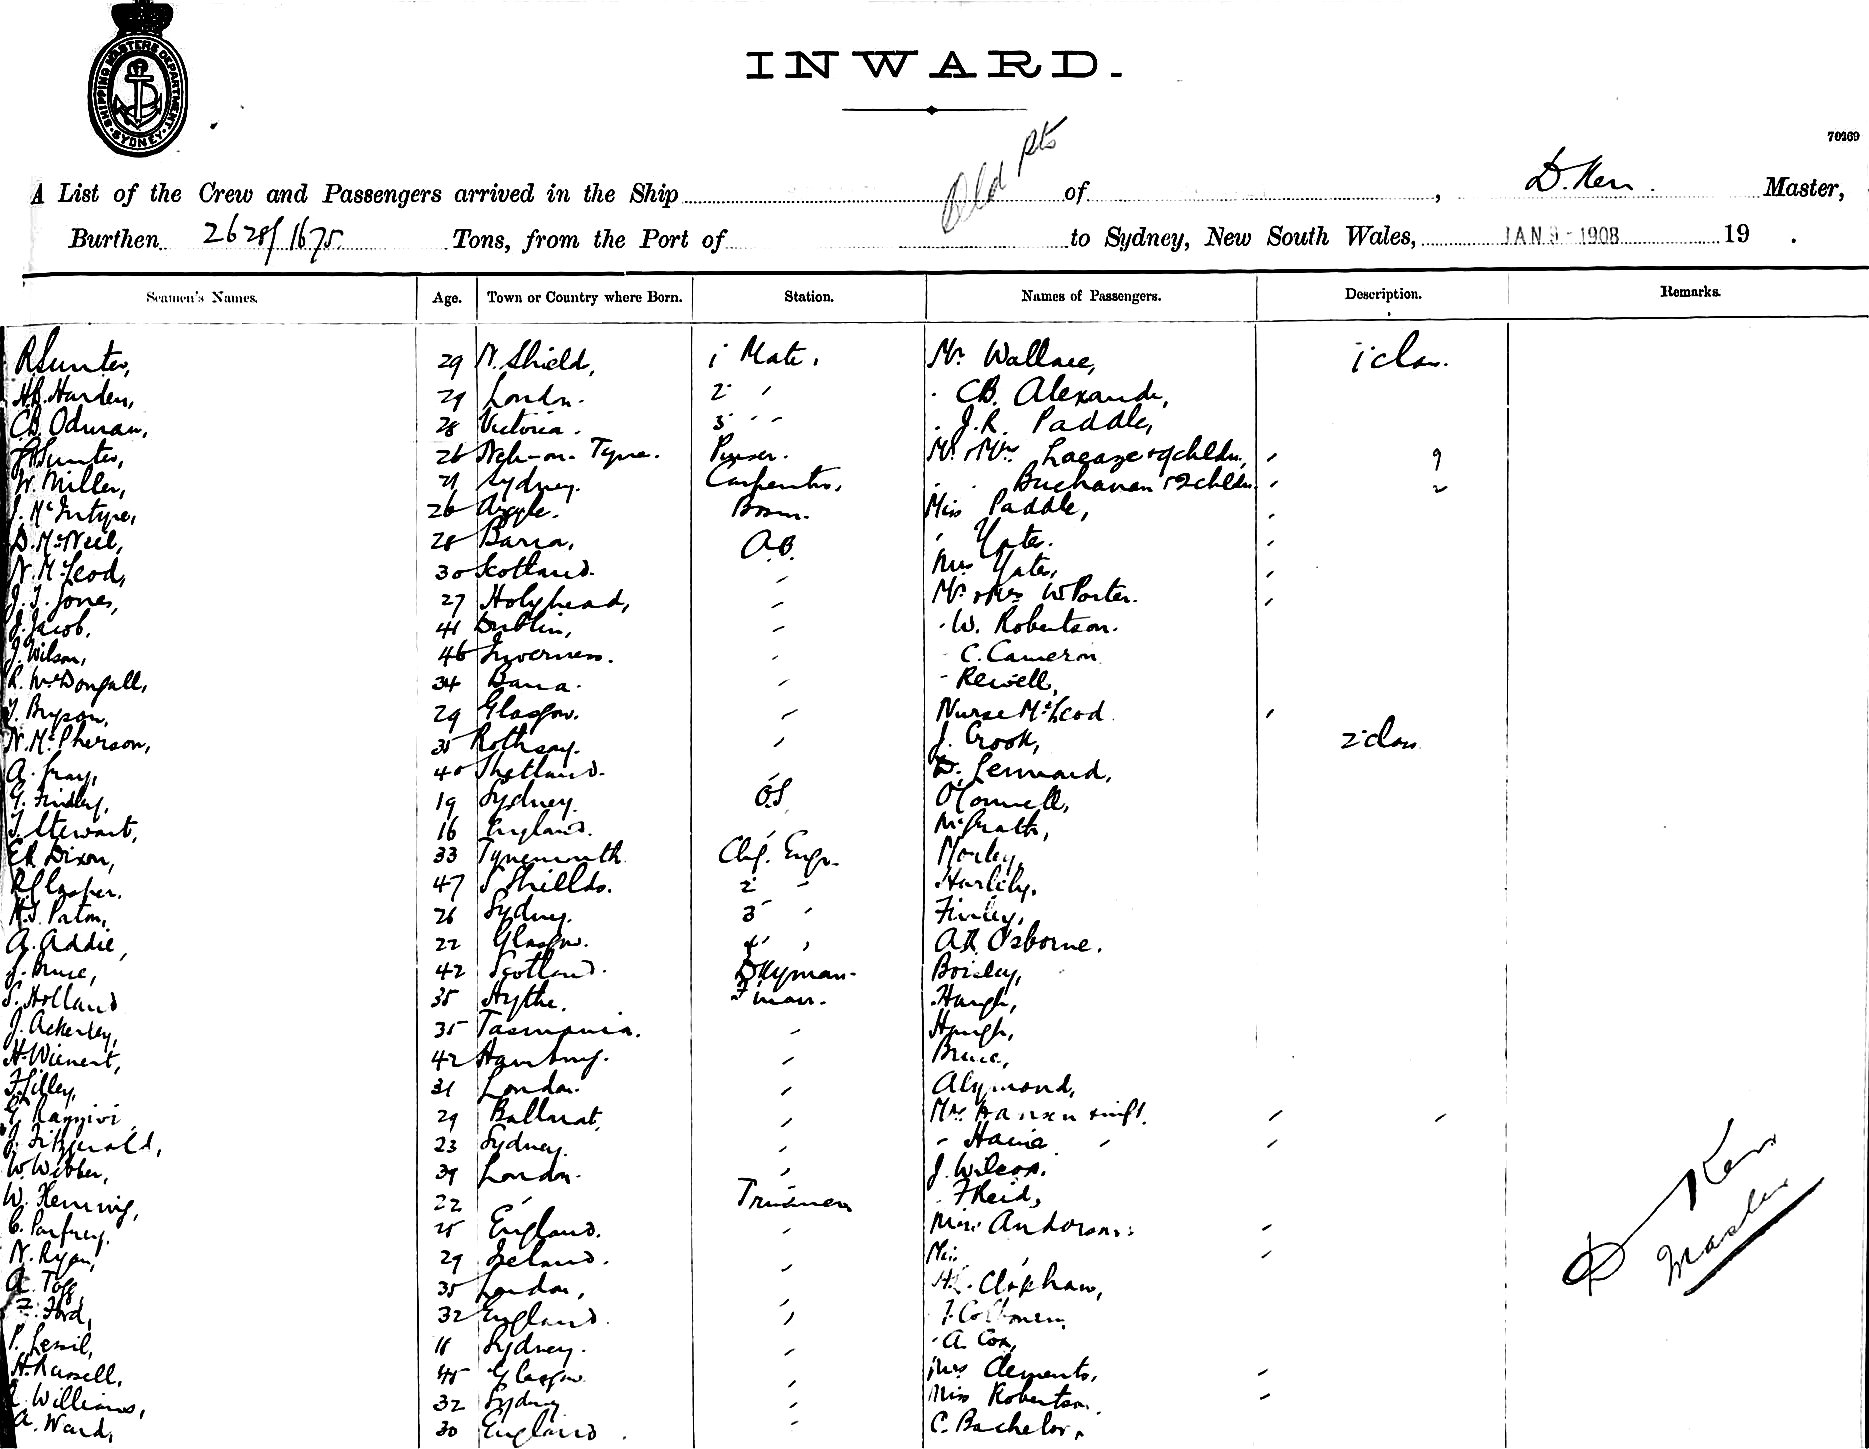 SHIPPING MASTERS DEPARTMENT. SYDNEY
INWARD.
70269
Old pts
A List of the Crew and Passengers arrived in the Ship of , D. Kerr. Master,
Burthen 2628/1675 Tons, from the Port of to Sydney, New South Wales, JAN 9-1908 19 .
Seamen's Names. Age. Town or Country where Born. Station. Names of Passengers. Description. Remarks.
R Sunter, 29 N. Shield, 1 Mate, Mr. Wallace, 1 class.
H.B. Harden, 29 London. 2 " CB. Alexande,
CB. Odman, 28 Victoria. 3 " " J.R. Paddle,
Sunter, 26 on Tyne. Purser. Mr. & Mrs Lacaze & 9 childn, " 9
W. Miller, 21 Sydney. Carpenter, Buchanan & 2 childn " 2
J. McIntype, 26 Argyle. Bosun. Miss Paddle, "
D. McNeil, 28 Barra, A.B. " Yates. "
N. McLeod, 30 Scotland. " Mrs Yates, "
J. T. Jones, 27 Holyhead, " Mr. & Mrs W Porter. "
J. Jacob, 41 Dublin, " W. Robertson.
J. Wilson, 46 Inverness. " C. Cameron
R. McDongall, 34 Barra. " Rewell,
Bryson, 29 Glasgow. " Nurse McLeod "
N. McPherson, 35 Rothsay. " J. Crook, 2 class
A. Gray, 40 Shetland. " D. Lennard,
G. Findley, 19 Sydney. O.S. O'Connell,
T. Stewart, 16 England. " McGrath,
Dixon, 33 Tynemouth Chf. Engr. Morley,
47 S Shields. 2 "
Paton, 26 Sydney. 3 " Finley,
A. Addie, 22 Glasgow. 4 " Osborne.
J. Bruce, 42 Scotland. Dkyman.
S. Holland 35 Hythe. Fman. Haugh,
J. Ackerley, 35 Tasmania. " Haugh,
H. Wienert, 42 Hamburg. " Bruce,
F Lilley, 31 London. " Alymond,
29 Ballarat, " Mrs Hansen & inft. " "
J. Fitzgerald, 23 Sydney. " " " "
W. Webber, 39 London. " J. Wilcox,
W. Fleming, 22 " Trimmer F Reid,
C. Parfrey. 25 England. " Miss Anderson, "
N. Ryan, 29 Ireland. " Miss " "
A. Toff, 35 London, " Clapham,
Ford, 32 England. "
P. 18 Sydney. " A. Cox,
H. Russell, 45 Glasgow " Mrs Clements, "
Williams, 32 Sydney " Miss Robertson. "
A. Ward, 30 England. " C. Bachelor,
D Kerr
Master